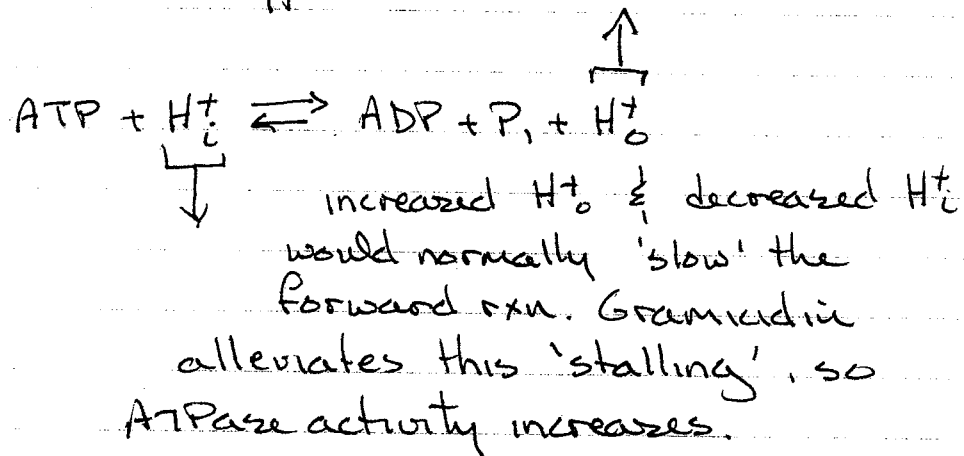 ATP + H⁺ᵢ ⇌ ADP + P₁ + H⁺₀
increased H⁺₀ & decreased H⁺ᵢ
would normally 'slow' the
forward rxn. Gramicidin
alleviates this 'stalling', so
ATPase activity increases.